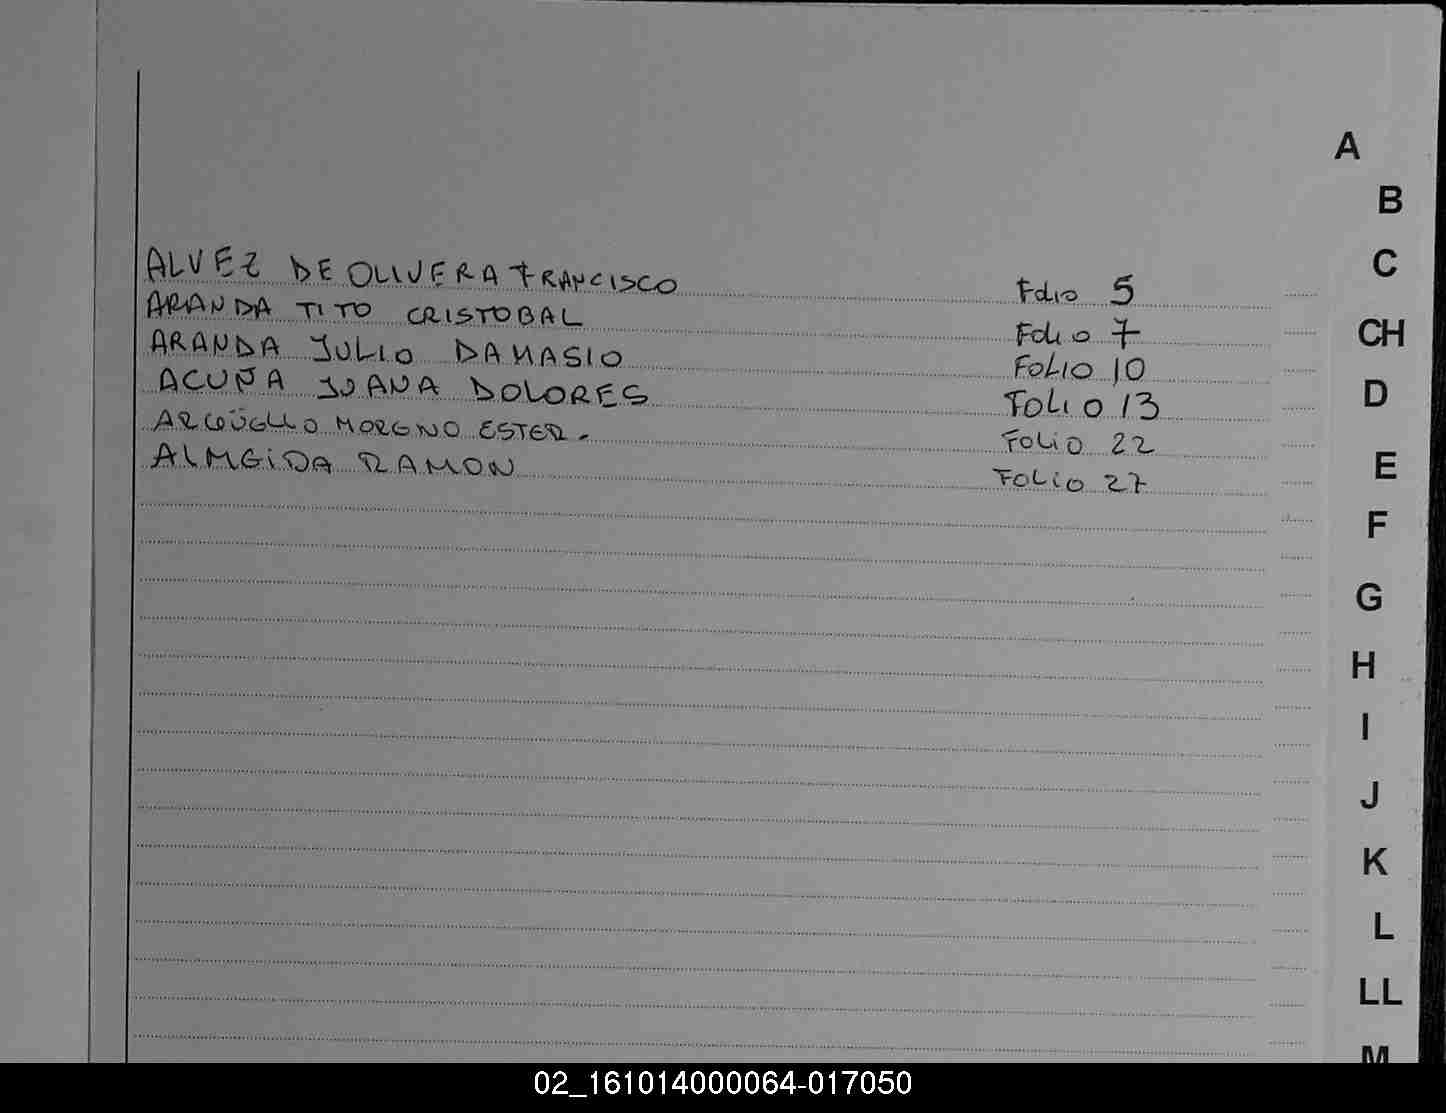 A
B
ALVEZ DE OLIVERA FRANCISCO Folio 5
C
ARANDA TITO CRISTOBAL Folio 7
CH
ARANDA JULIO DAMASIO FOLIO 10
ACUÑA JUANA DOLORES FOLIO 13
D
ARGÜELLO MORENO ESTER. FOLIO 22
ALMEIDA RAMON FOLIO 27
E
F
G
H
I
J
K
L
LL
M
02_161014000064-017050